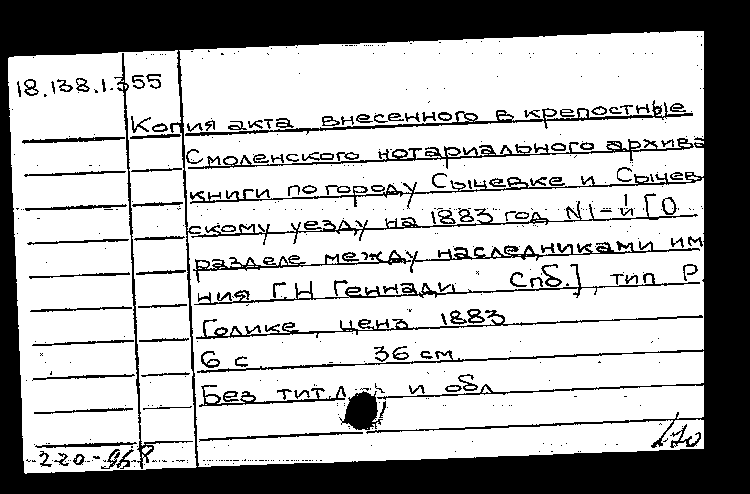 18.138.1.355
Копия акта, внесенного в крепостные
Смоленского нотариального архива
книги по городу Сычевке и Сычев-
скому уезду на 1883 год, N 1-й [О
разделе между наследниками им
ния Г.Н Геннади. Спб.], тип Р.
Голике, ценз 1883
6 с 36 см.
Без тит. л и обл
220-968